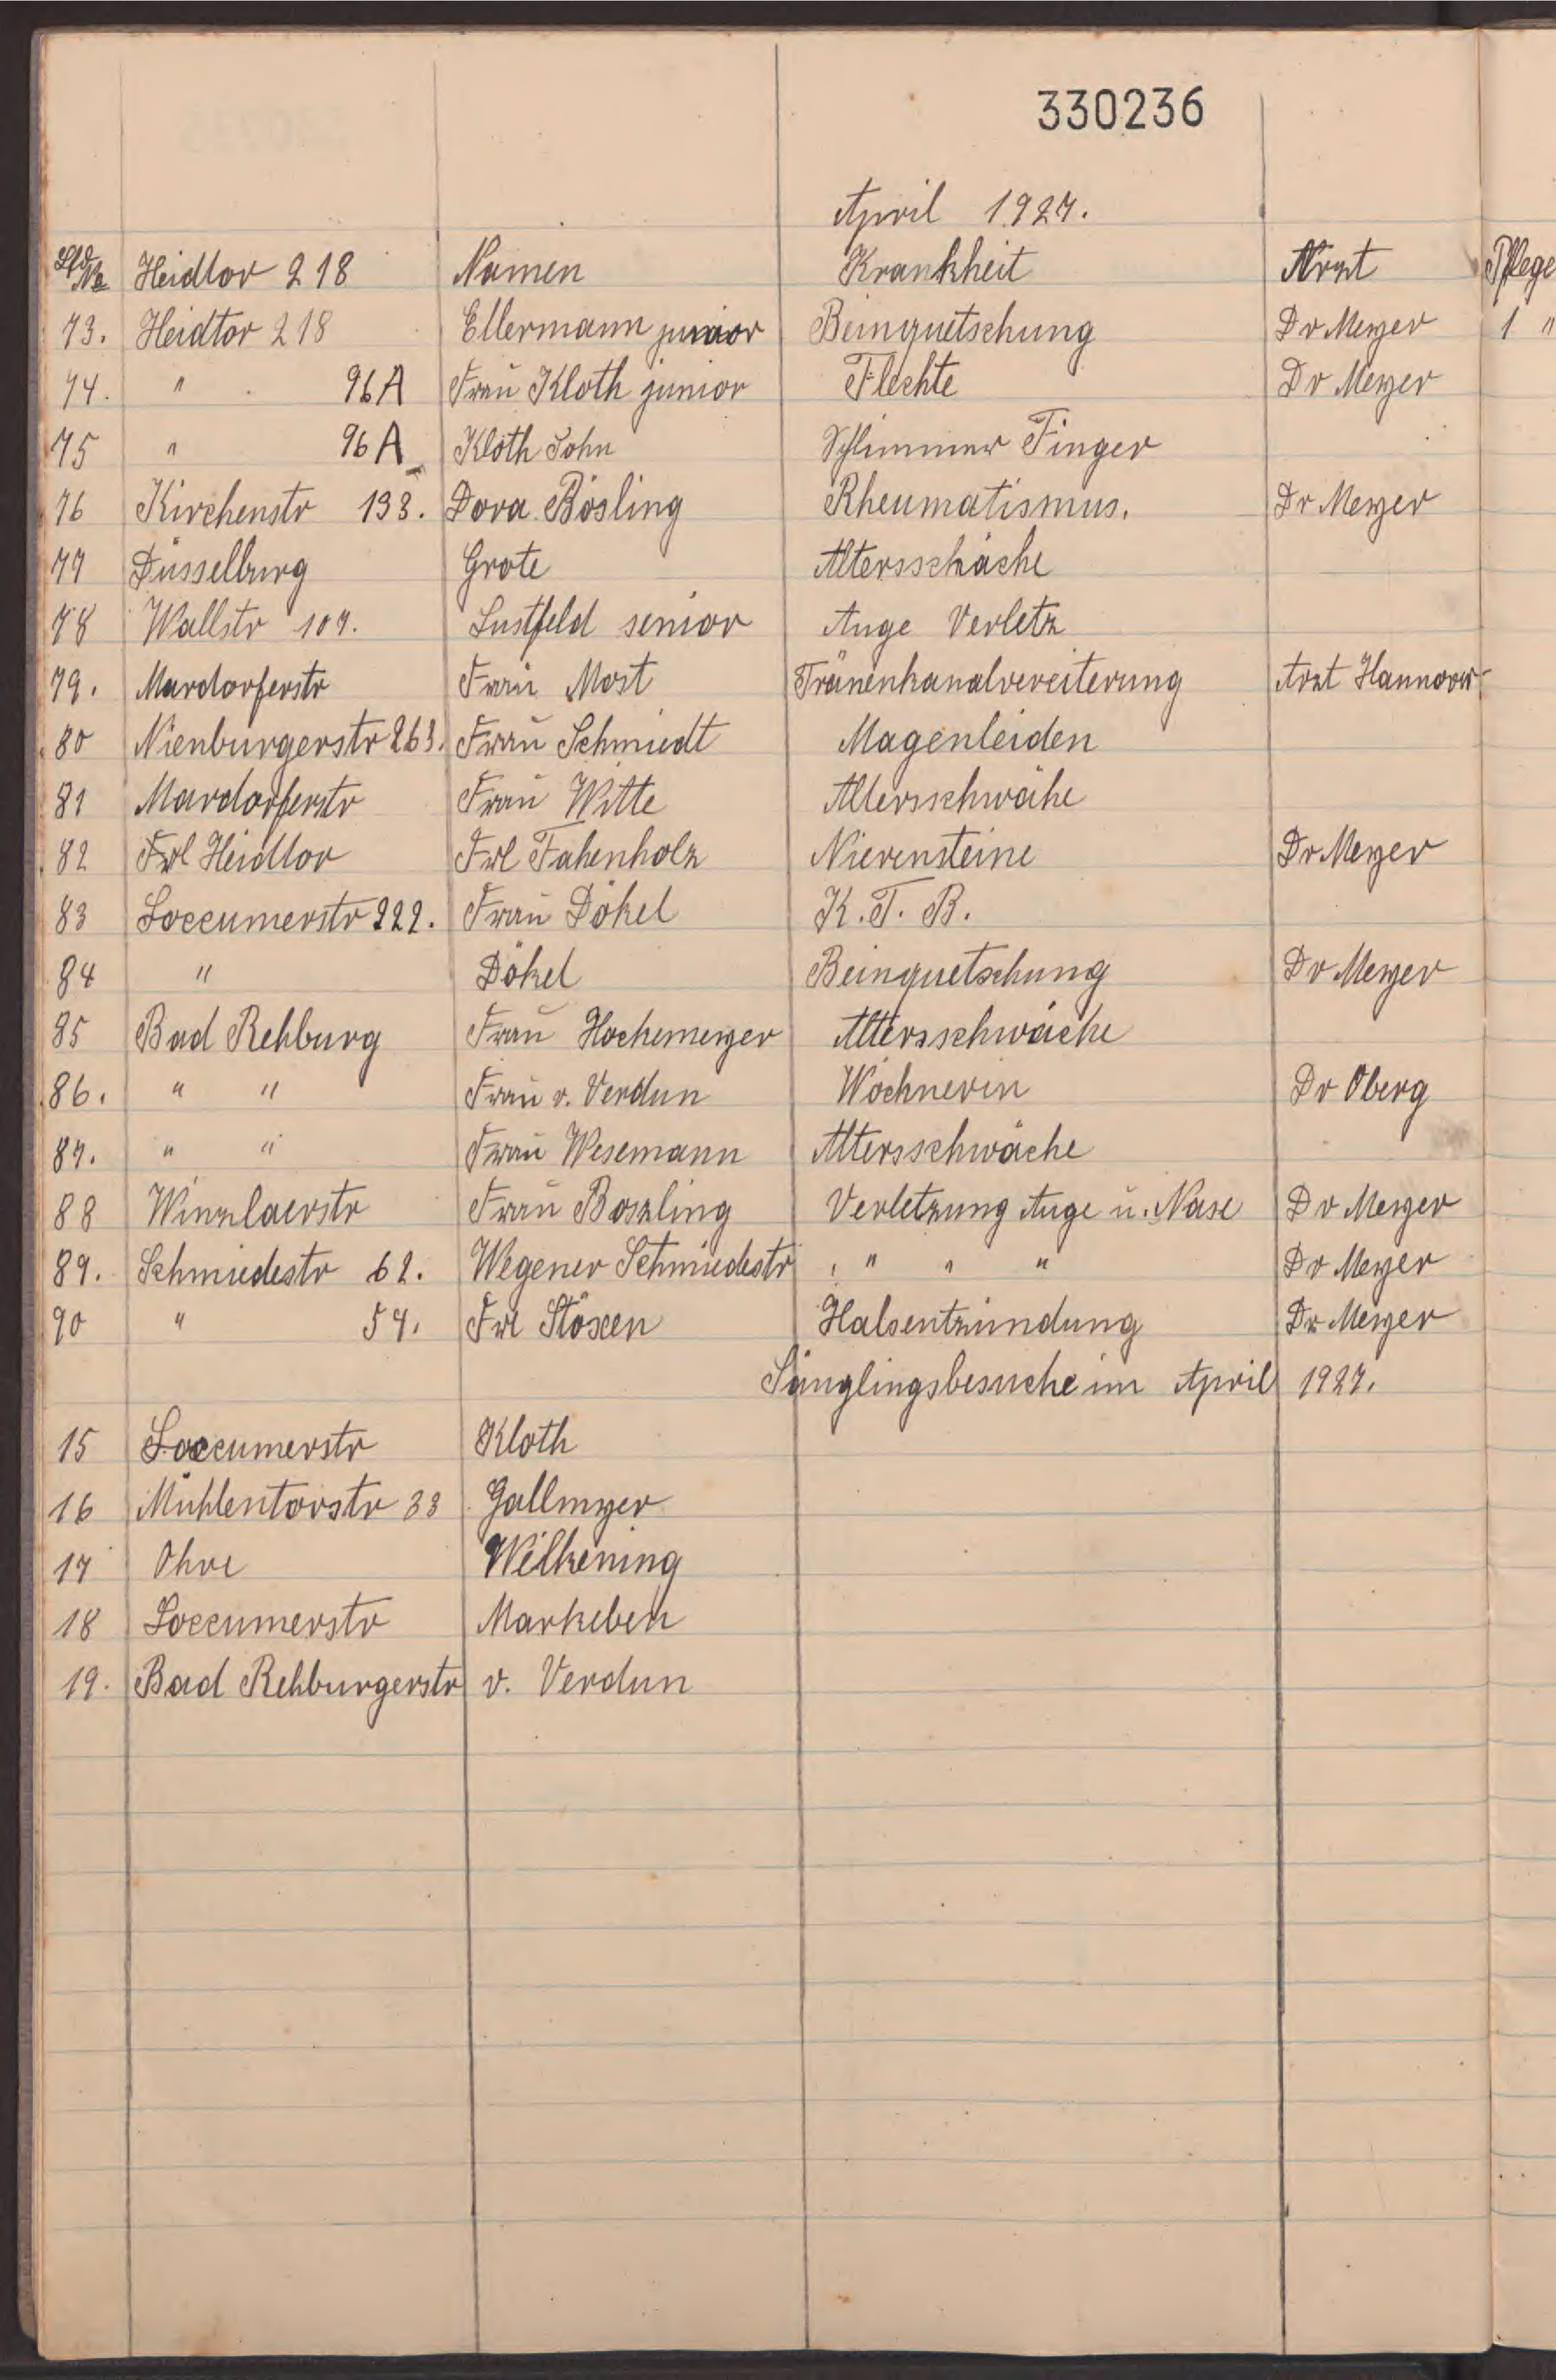 330236
April 1927.
Lfd No Heidtor 218 Namen Krankheit Arzt Pflege
73. Heidtor 218 Ellermann junior Beinquetschung Dr Meyer 1 "
74. " 96A Frau Kloth junior Flechte Dr Meyer
75 " 96A Kloth Sohn Schlimmer Finger
76 Kirchenstr 133. Dora Bösling Rheumatismus. Dr Meyer
77 Düsselburg Grote Altersschäche
78 Wallstr 107. Lustfeld senior Auge Verletz
79. Mardorferstr Frau Most Tränenkanalvereiterung Arzt Hannover
80 Nienburgerstr 263. Frau Schmiedt Magenleiden
81 Mardorferstr Frau Witte Altersschwähe
82 Frl Heidtor Frl Fahenholz Nierensteine Dr Meyer
83 Loccumerstr 222. Frau Dökel K. T. B.
84 " Dökel Beinquetschung Dr Meyer
85 Bad Rehburg Frau Hochemeyer Altersschwäche
86. " " Frau v. Verdun Wöchnerin Dr Oberg
87. " " Frau Wesemann Altersschwäche
88 Winzlaerstr Frau Boszling Verletzung Auge u. Nase Dr Meyer
89. Schmiedestr 62. Wegener Schmiedestr " " " Dr Meyer
90 " 54. Frl Stöxen Halsentzündung Dr Meyer
Säuglingsbesuche im April 1927.
15 Loccumerstr Kloth
16 Mühlentorstr 33 Gallmyer
17 Ohre Wilkening
18 Loccumerstr Markeben
19. Bad Rehburgerstr v. Verdun